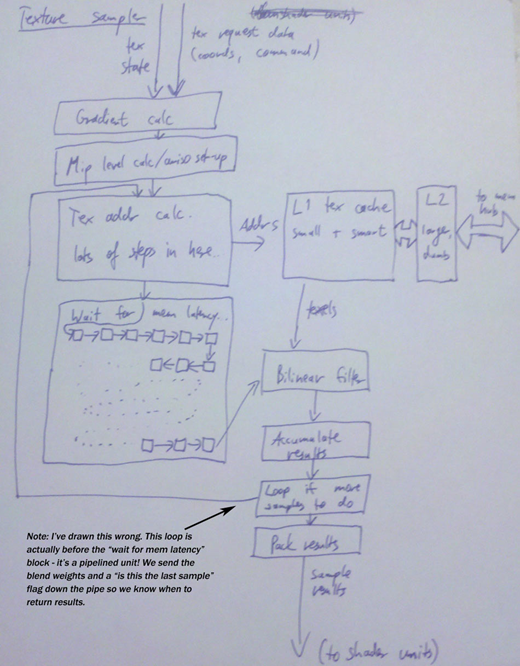 Texture sampler
tex
state
tex request data
(coords, command)
Gradient calc
Mip level calc/aniso set-up
Tex addr calc.
lots of steps in here..
Addrs
L1 tex cache
small + smart
L2
larger,
dumb
to mem
hub
Wait for mem latency...
texels
Bilinear filter
Accumulate
results
Loop if more
samples to do
Pack results
sample
results
(to shader units)
Note: I've drawn this wrong. This loop is
actually before the "wait for mem latency"
block - it's a pipelined unit! We send the
blend weights and a "is this the last sample"
flag down the pipe so we know when to
return results.